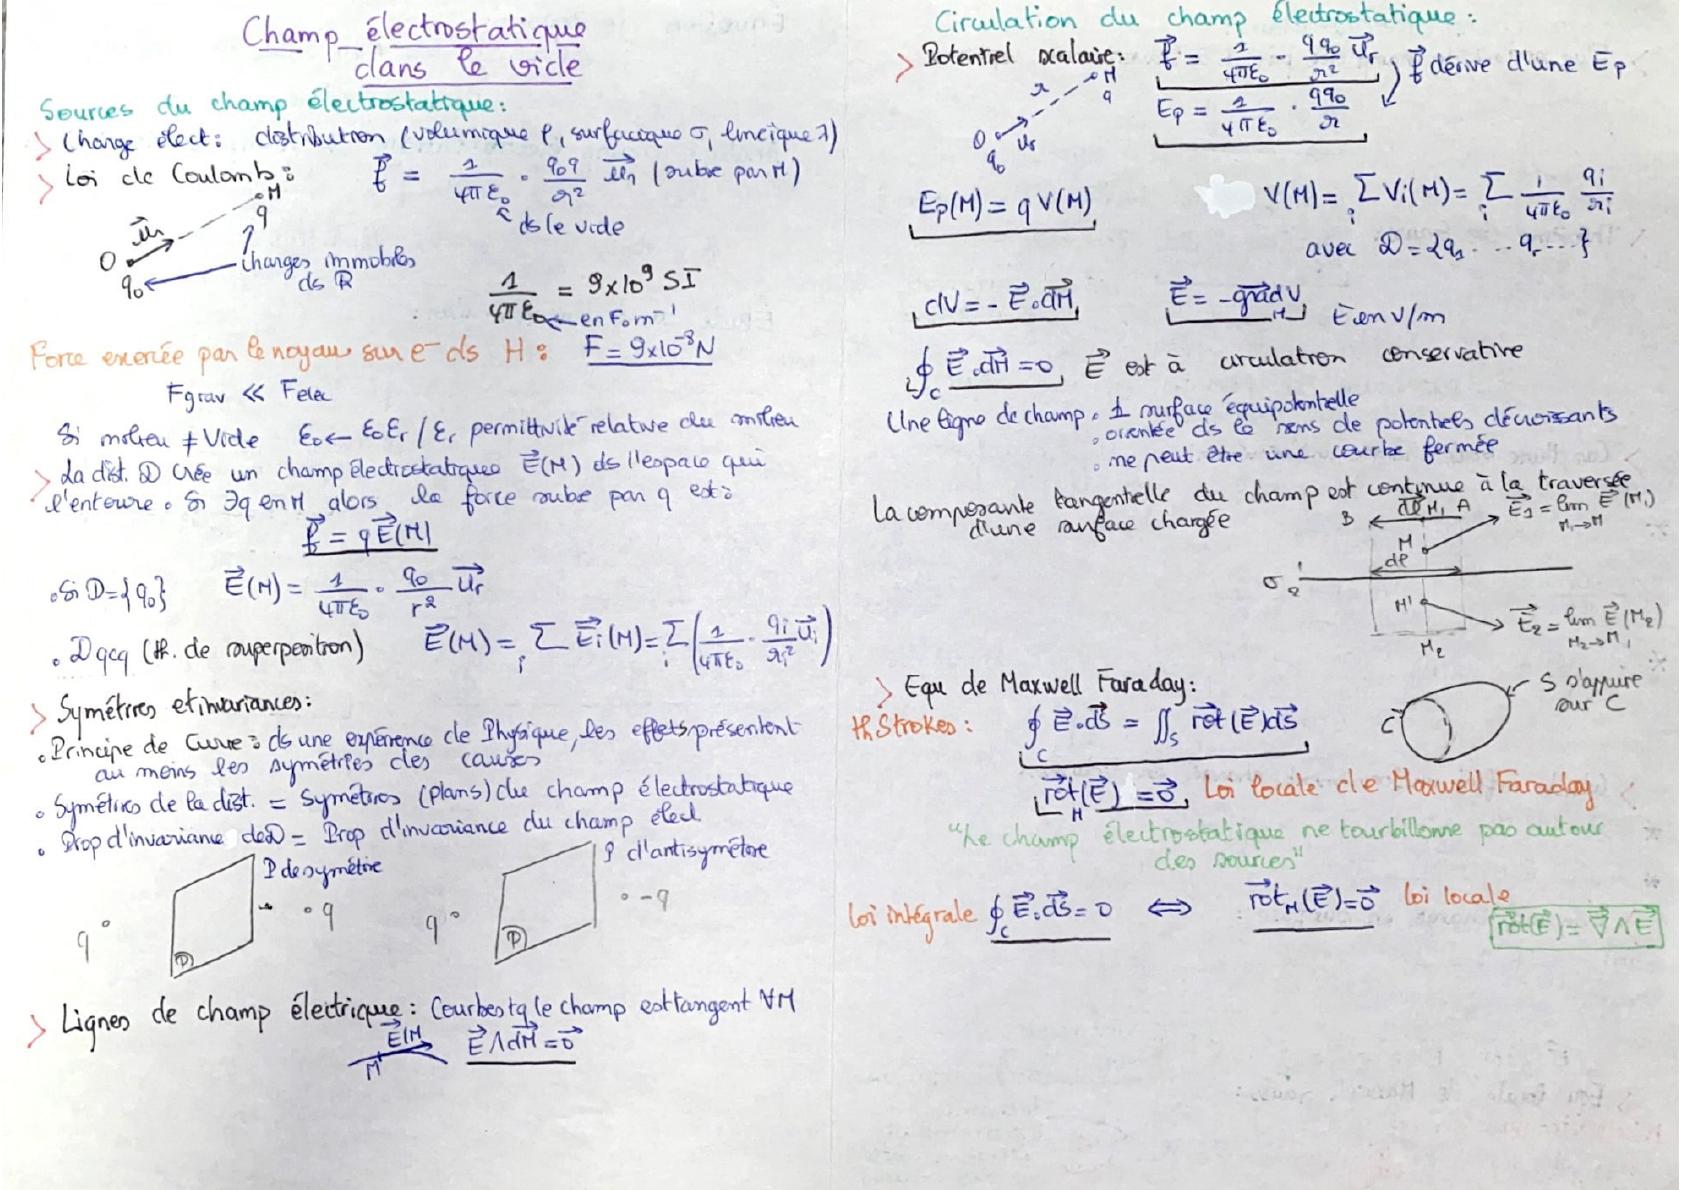 Champ électrostatique
dans le vide
Sources du champ électrostatique :
> Charge élect : distribution (volumique ρ, surfacique σ, lineique λ)
> Loi de Coulomb : f⃗ = 1/4πε₀ · q₀q/r² u⃗r (subie par M)
ds le vide
u⃗r M q O q₀
charges immobiles
ds R
1/4πε₀ = 9x10⁹ SI
en F.m⁻¹
Force exercée par le noyau sur e⁻ ds H : F = 9x10⁻⁸N
Fgrav << Felec
Si milieu ≠ Vide ε₀ ← ε₀εr / εr permittivité relative du milieu
> La dist. D crée un champ électrostatique E⃗(M) ds l'espace qui
l'entoure. Si ∃q en M alors la force subie par q est :
f⃗ = qE⃗(M)
. Si D = {q₀} E⃗(M) = 1/4πε₀ · q₀/r² u⃗r
. D qcq (th. de superposition) E⃗(M) = Σi E⃗i(M) = Σi (1/4πε₀ · qi/ri² u⃗i)
> Symétries et invariances :
. Principe de Curie : ds une expérience de Physique, les effets présentent
au moins les symétries des causes
. Symétries de la dist. = Symétries (plans) du champ électrostatique
. Prop d'invariance de D = Prop d'invariance du champ élect
P de symétrie P d'antisymétrie
q q q -q
P P
> Lignes de champ électrique : Courbes tq le champ est tangent ∀M
E⃗(M M E⃗ ∧ dM⃗ = 0⃗
Circulation du champ électrostatique :
> Potentiel scalaire : f⃗ = 1/4πε₀ · qq₀/r² u⃗r f⃗ dérive d'une Ep
Ep = 1/4πε₀ · qq₀/r
r M q O q₀ u⃗r
Ep(M) = q V(M) V(M) = Σi Vi(M) = Σi 1/4πε₀ qi/ri
avec D = {q₁ ... qi ...}
dV = - E⃗.dM⃗ E⃗ = -grad⃗M V E en V/m
∮C E⃗.dM⃗ = 0 E⃗ est à circulation conservative
Une ligne de champ . ⊥ surface équipotentielle
. orientée ds le sens de potentiels décroissants
. ne peut être une courbe fermée
La composante tangentielle du champ est continue à la traversée
d'une surface chargée
B dl⃗ M₁ A E⃗₁ = lim E⃗(M₁)
M₁→M
M
dl
σ 1
2
M' E⃗₂ = lim E⃗(M₂)
M₂→M'
M₂
> Equ de Maxwell Faraday :
S s'appuie
sur C
C
th Strokes : ∮C E⃗.ds⃗ = ∬S rot⃗(E⃗)ds⃗
rot⃗M(E⃗) = 0⃗ Loi locale de Maxwell Faraday
"Le champ électrostatique ne tourbillonne pas autour
des sources"
Loi intégrale ∮C E⃗.ds⃗ = 0 ⇔ rot⃗M(E⃗) = 0⃗ loi locale
rot⃗(E⃗) = ∇⃗ ∧ E⃗